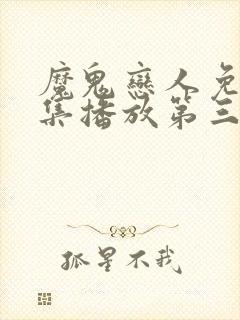 魔鬼戀人免
集播放第三
孤星不我